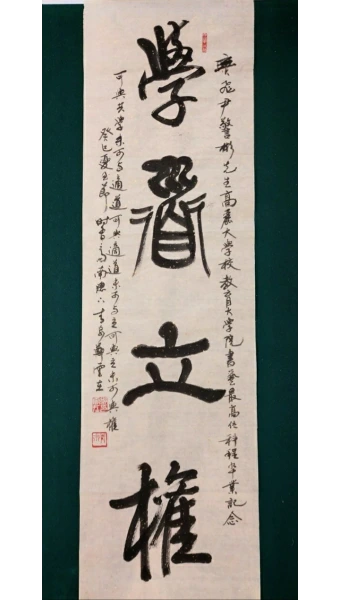 尹彬先生高麗大學校教育大學院書藝最高位科程卒業記念
學道立權
可與共學未可与適道可與適道未可与立可與立未可與權
癸巳夏至節時書鄭雲在